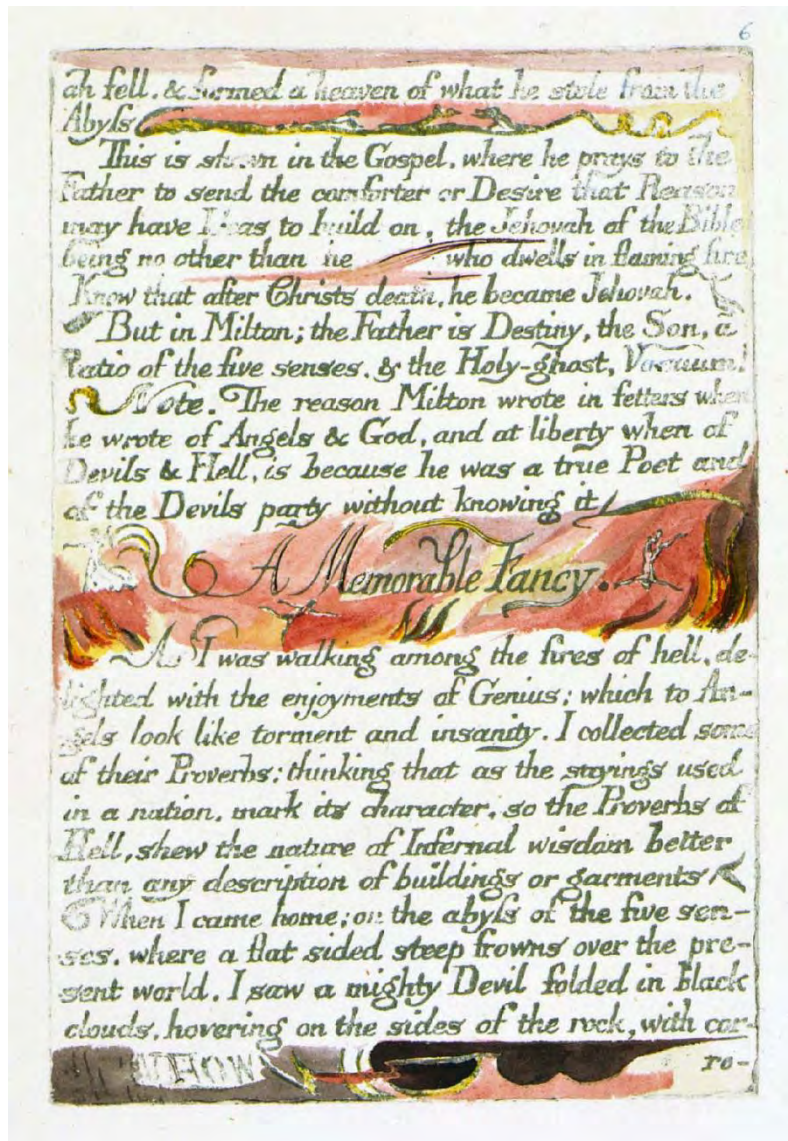 6
ah fell. & formed a heaven of what he stole from the
Abyſs
This is shewn in the Gospel, where he prays to the
Father to send the comforter or Desire that Reason
may have Ideas to build on, the Jehovah of the Bible
being no other than he who dwells in flaming fire
Know that after Christs death, he became Jehovah.
But in Milton; the Father is Destiny, the Son, a
Ratio of the five senses. & the Holy-ghost, Vacuum!
Note. The reason Milton wrote in fetters when
he wrote of Angels & God, and at liberty when of
Devils & Hell, is because he was a true Poet and
of the Devils party without knowing it
A Memorable Fancy.
As I was walking among the fires of hell, de-
lighted with the enjoyments of Genius; which to An-
gels look like torment and insanity. I collected some
of their Proverbs: thinking that as the sayings used
in a nation, mark its character, so the Proverbs of
Hell, shew the nature of Infernal wisdom better
than any description of buildings or garments
When I came home; on the abyſs of the five sen-
ses, where a flat sided steep frowns over the pre-
sent world. I saw a mighty Devil folded in black
clouds, hovering on the sides of the rock, with cor-
ro-